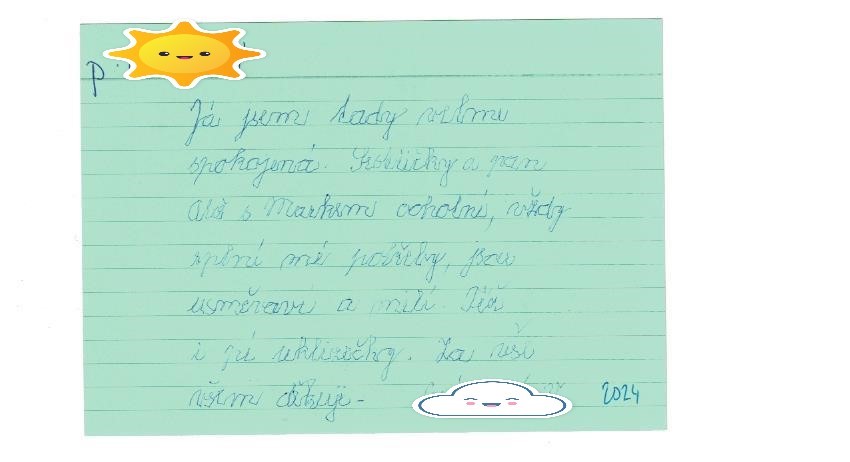 P.
Já jsem tady velmi
spokojená. Sestřičky a pan
Aleš s Markem ochotní, vždy
splní mé potřeby, jsou
usměvaví a milí. Též
i pí uklizečky. Za vší
všem děkuji -
2024